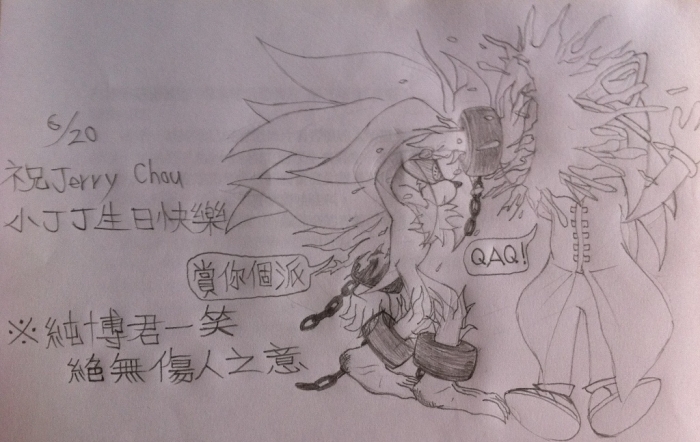 6/20
祝Jerry Chou
小丁丁生日快樂
賞你個派
QAQ!
※純博君一笑
絕無傷人之意